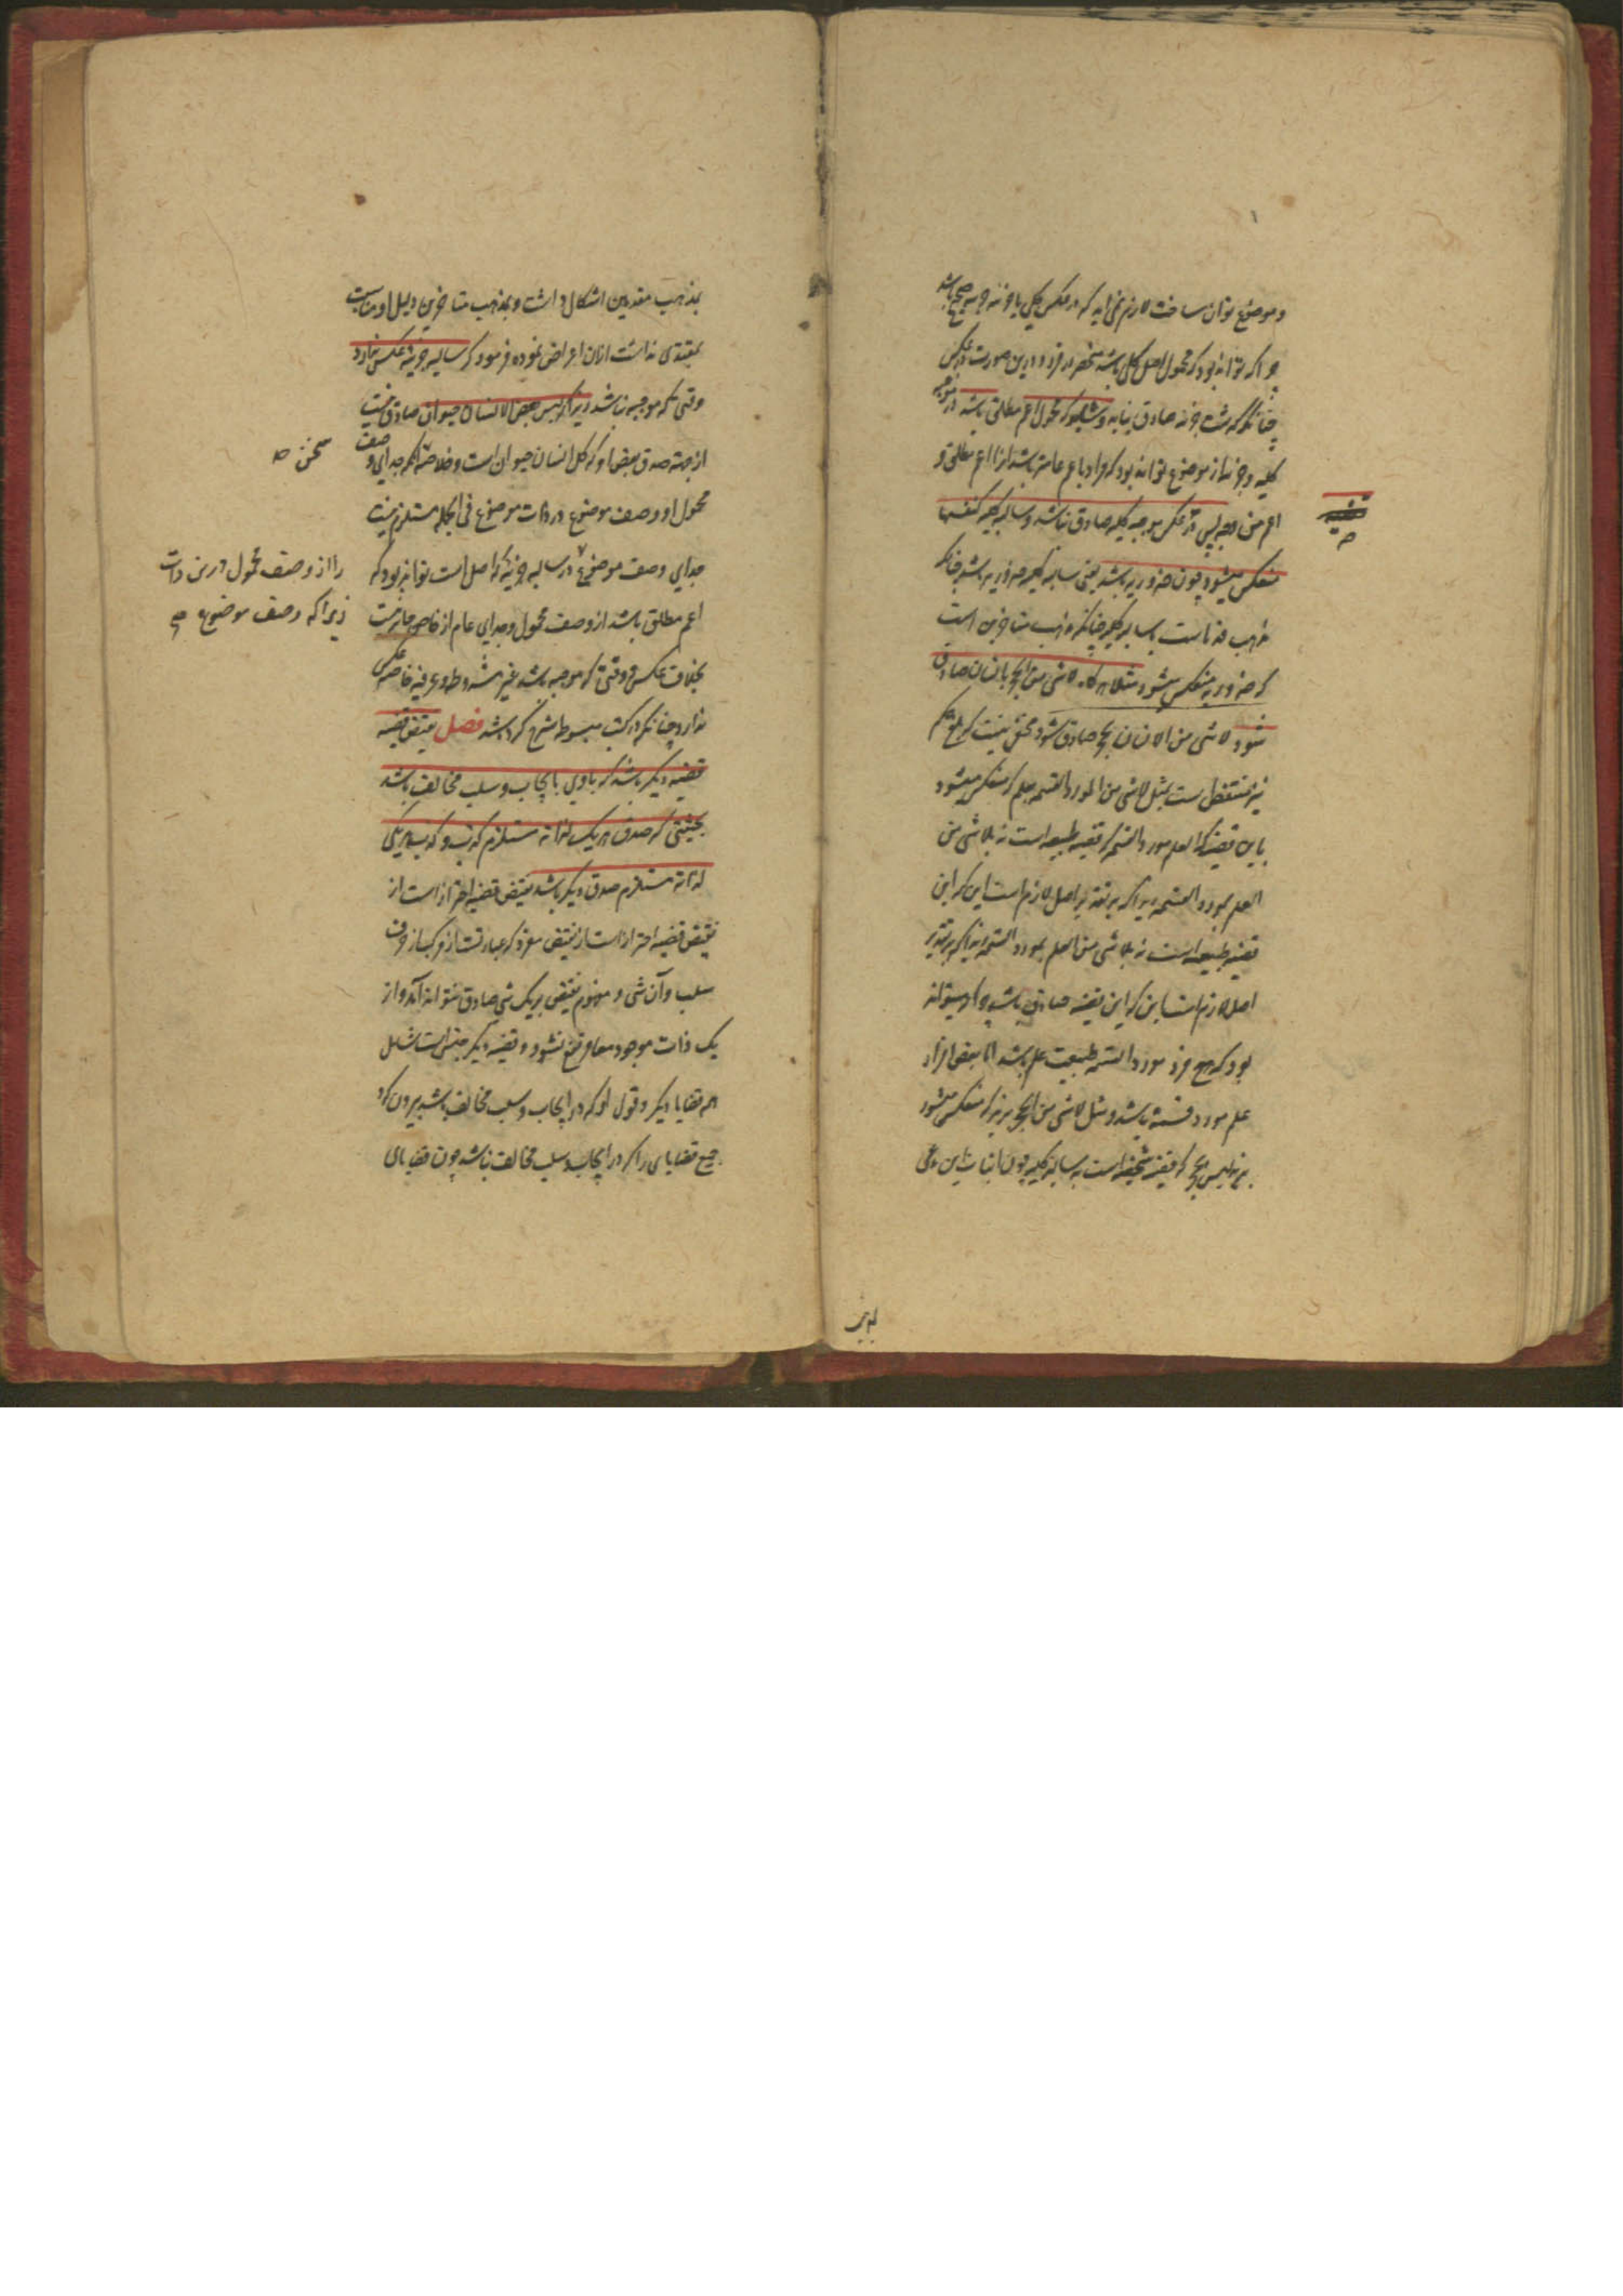 و موضوع توان ساخت لازم نمی آید که در عکس کلی یا جزئیه صحیح باشد
چرا که تواند بود که محمول اصل کلی باشد منحصر در فرد و درین صورت در عکس
چنانکه گذشت جزئیه صادق نیاید و شاید که محمول اعم مطلق باشد در موجبه
کلیه و جزئیه از موضوع تواند بود که مراد باعم عامتر باشد از اعم مطلق و
اعم من وجه پس در عکس موجبه کلیه صادق نباشد و سالبه کلیه کنفسها
منعکس میشود چون ضروریه باشد یعنی سالبه کلیه ضروریه باشد چنانکه
مذهب قدماست یا سالبه کلیه چنانکه مذهب متاخرین است
که ضروریه منعکس میشود مثلا هرگاه لاشی من الحجر بانسان صادق
شود لاشی من الانسان بحجر صادق شود مخفی نیست که این حکم
نیز منتقض است بمثل لاشی من المورد القسمه بعلم که منعکس میشود
باین قضیه که العلم مورد القسمه که قضیه طبیعیه است نه بلاشی من
العلم بمورد القسمه زیرا که بر تقدیر اصل لازم است این که این
قضیه طبیعیه است نه بلاشی من العلم بمورد القسمه زیرا که بر تقدیر
اصل لازم است این که این قضیه صادق باشد چرا که میتواند
بود که هیچ فرد مورد القسمه طبیعت علم نباشد اما بعض افراد
علم مورد قسمت باشد و مثل لاشی من الحجر بزید که منعکس میشود
بزید لیس بحجر که قضیه شخصیه است نه سالبه کلیه چون اثبات این دعوی
بمذهب متقدمین اشکال داشت و بمذهب متاخرین دلیل او مناسبت
بمبتدی نداشت ازان اعراض نموده فرمود که سالبه جزئیه عکس ندارد
وقتی که موجبه نباشد زیرا که لیس بعض الانسان حیوان صادق نیست
از جهة صدق نقیض او که کل انسان حیوان است و خلاصه آنکه جدایی وصف
محمول او وصف موضوع در ذات موضوع فی الجمله مستلزم نیست
جدایی وصف موضوع در سالبه جزئیه که اصل است تواند بود که
اعم مطلق باشد از وصف محمول و جدایی عام از خاص جایزست
بخلاف عکس و وقتی که موجبه باشد غیر مشروطه و عرفیه خاصه عکس
ندارد چنانکه در کتب مبسوطه شرح کرده باشد فصل نقیض قضیه
قضیه دیگر باشد که با وی بایجاب و سلب مخالف باشد
بحیثیتی که صدق هر یک لذاته مستلزم کذب و کذب هر یکی
لذاته مستلزم صدق دیگر باشد نقیض قضیه احتراز است از
نقیض قضیه احتراز است از نقیض مفرد که عبارتست از مرکب از حرف
سلب و آن شی و مفهوم نقیض بر یک شی صادق نتواند آمد و از
یک ذات موجود معا مرتفع نشود و قضیه دیگر جنس است شامل
همه قضایا دیگر و قول او که در ایجاب و سلب مخالف باشد بیرون کرد
جمیع قضایای را که در ایجاب و سلب مخالف نباشد چون قضایای
را از وصف محمول درین ذات
زیرا که وصف موضوع صح